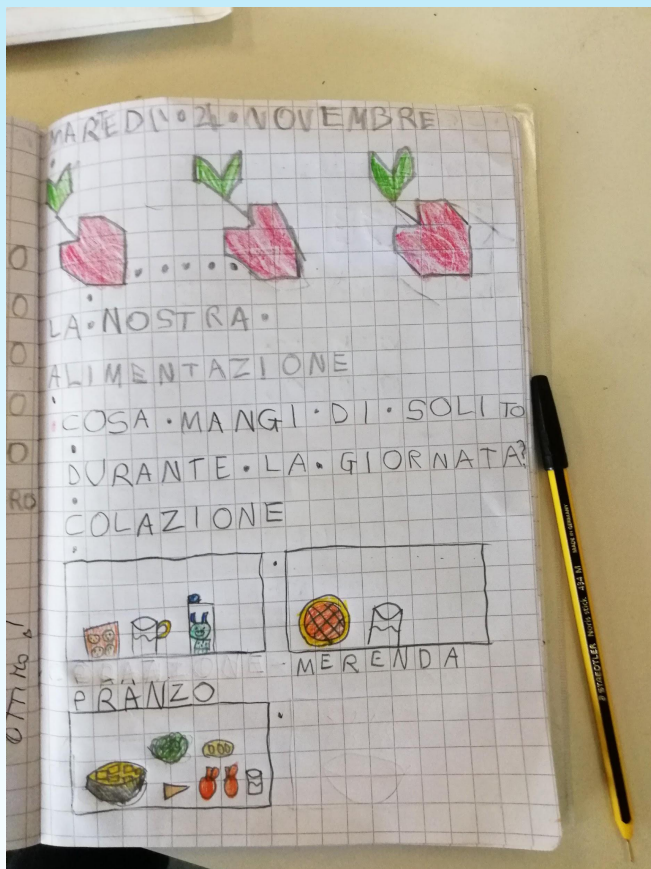 MARTEDI'•24•NOVEMBRE
LA•NOSTRA•
ALIMENTAZIONE
COSA•MANGI•DI•SOLITO
DURANTE•LA•GIORNATA?
COLAZIONE
MERENDA
PRANZO
O
O
O
O
O
RO
OTTIMO!
STAEDTLER Noris stick 434 M
MADE IN GERMANY